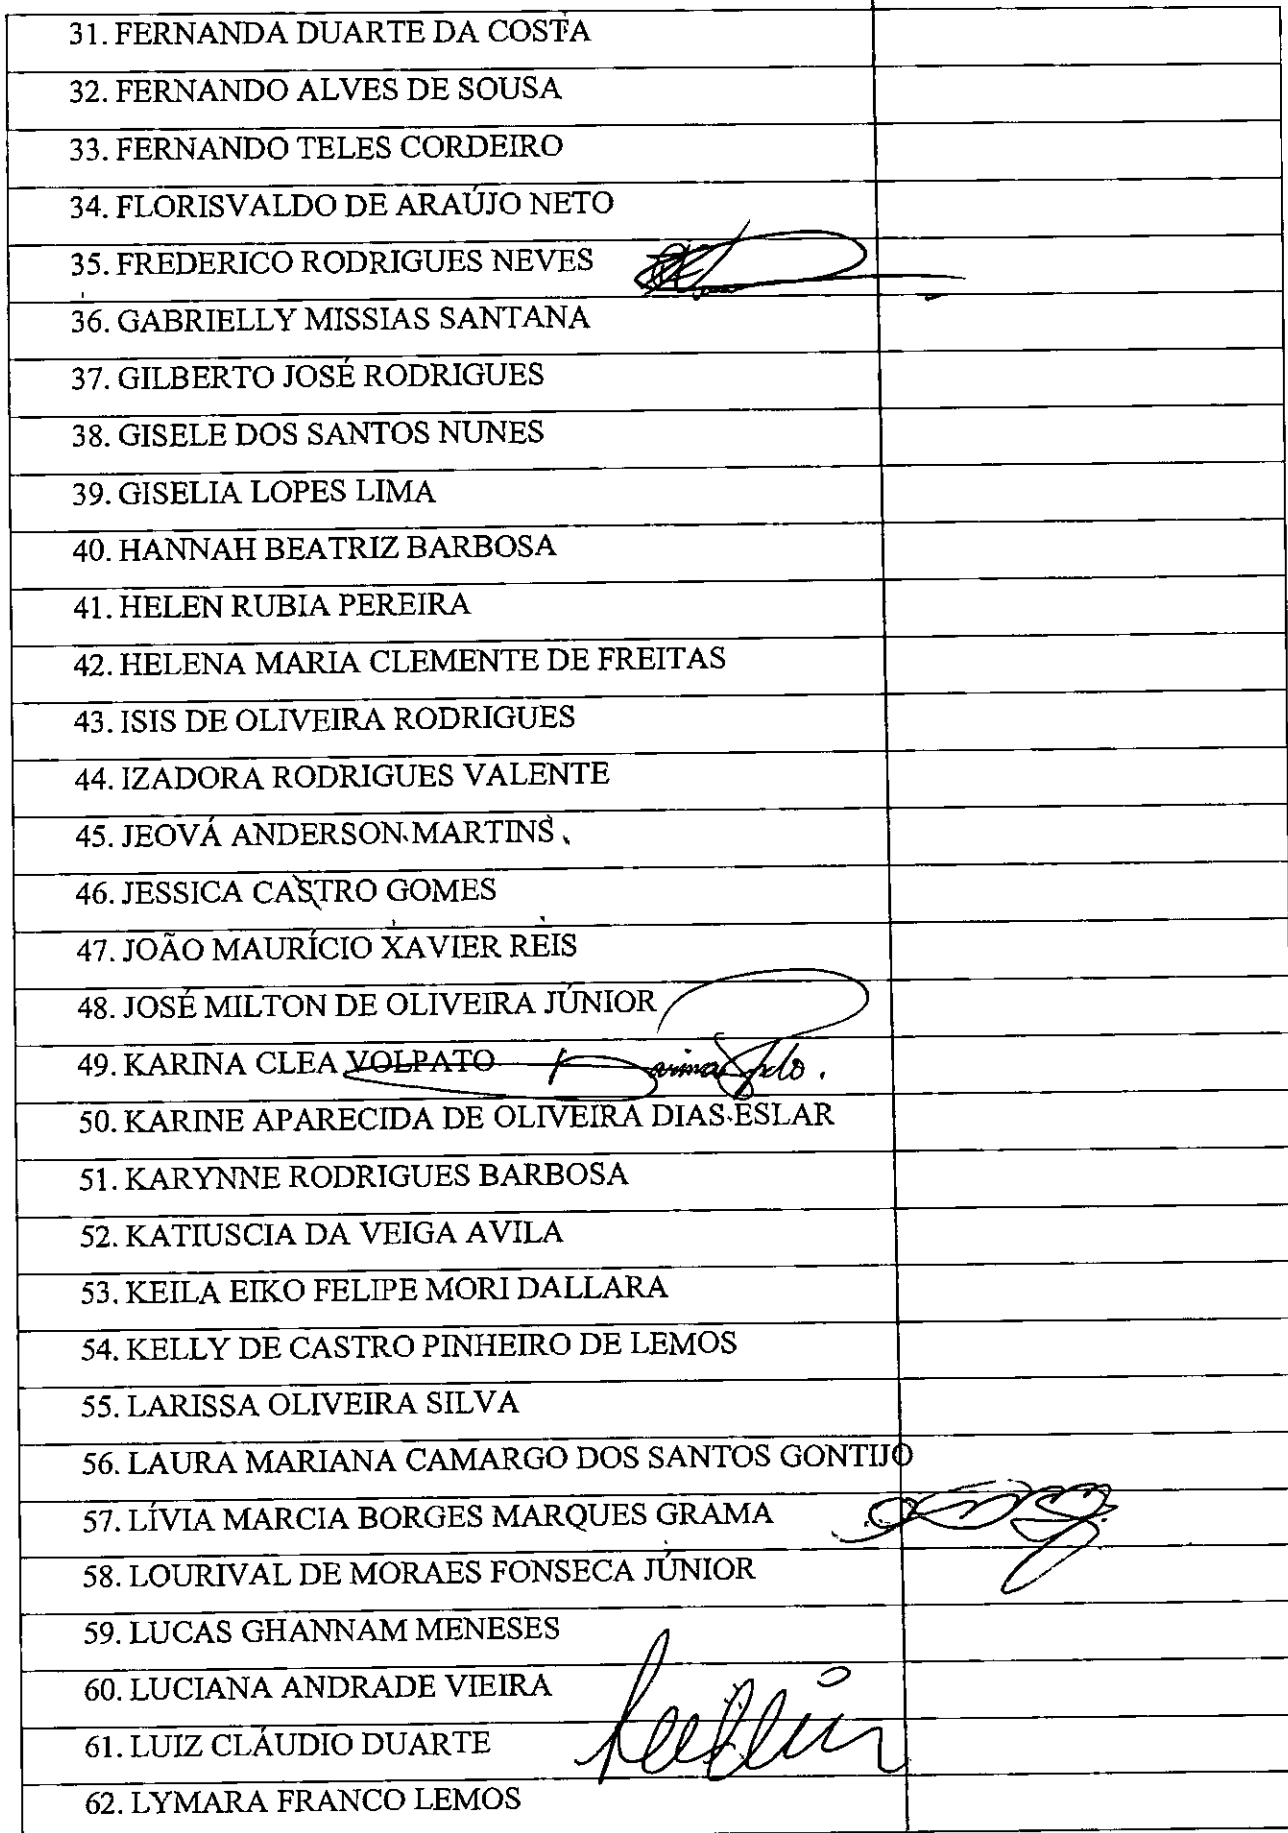 31. FERNANDA DUARTE DA COSTA
32. FERNANDO ALVES DE SOUSA
33. FERNANDO TELES CORDEIRO
34. FLORISVALDO DE ARAÚJO NETO
35. FREDERICO RODRIGUES NEVES
36. GABRIELLY MISSIAS SANTANA
37. GILBERTO JOSÉ RODRIGUES
38. GISELE DOS SANTOS NUNES
39. GISELIA LOPES LIMA
40. HANNAH BEATRIZ BARBOSA
41. HELEN RUBIA PEREIRA
42. HELENA MARIA CLEMENTE DE FREITAS
43. ISIS DE OLIVEIRA RODRIGUES
44. IZADORA RODRIGUES VALENTE
45. JEOVÁ ANDERSON MARTINS
46. JESSICA CASTRO GOMES
47. JOÃO MAURÍCIO XAVIER REIS
48. JOSÉ MILTON DE OLIVEIRA JÚNIOR
49. KARINA CLEA VOLPATO
50. KARINE APARECIDA DE OLIVEIRA DIAS ESLAR
51. KARYNNE RODRIGUES BARBOSA
52. KATIUSCIA DA VEIGA AVILA
53. KEILA EIKO FELIPE MORI DALLARA
54. KELLY DE CASTRO PINHEIRO DE LEMOS
55. LARISSA OLIVEIRA SILVA
56. LAURA MARIANA CAMARGO DOS SANTOS GONTIJO
57. LÍVIA MARCIA BORGES MARQUES GRAMA
58. LOURIVAL DE MORAES FONSECA JÚNIOR
59. LUCAS GHANNAM MENESES
60. LUCIANA ANDRADE VIEIRA
61. LUIZ CLÁUDIO DUARTE
62. LYMARA FRANCO LEMOS